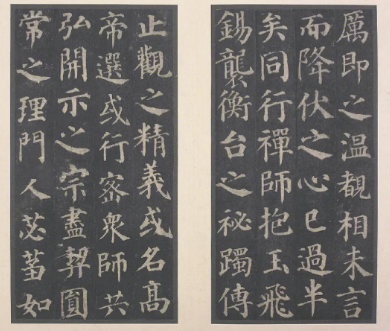 厲即之溫覩相未言
而降伏之心已過半
矣同行禪師抱玉飛
錫襲衡台之祕躅傳
止觀之精義或名高
帝選或行密衆師共
弘開示之宗盡契圓
常之理門人苾蒭如